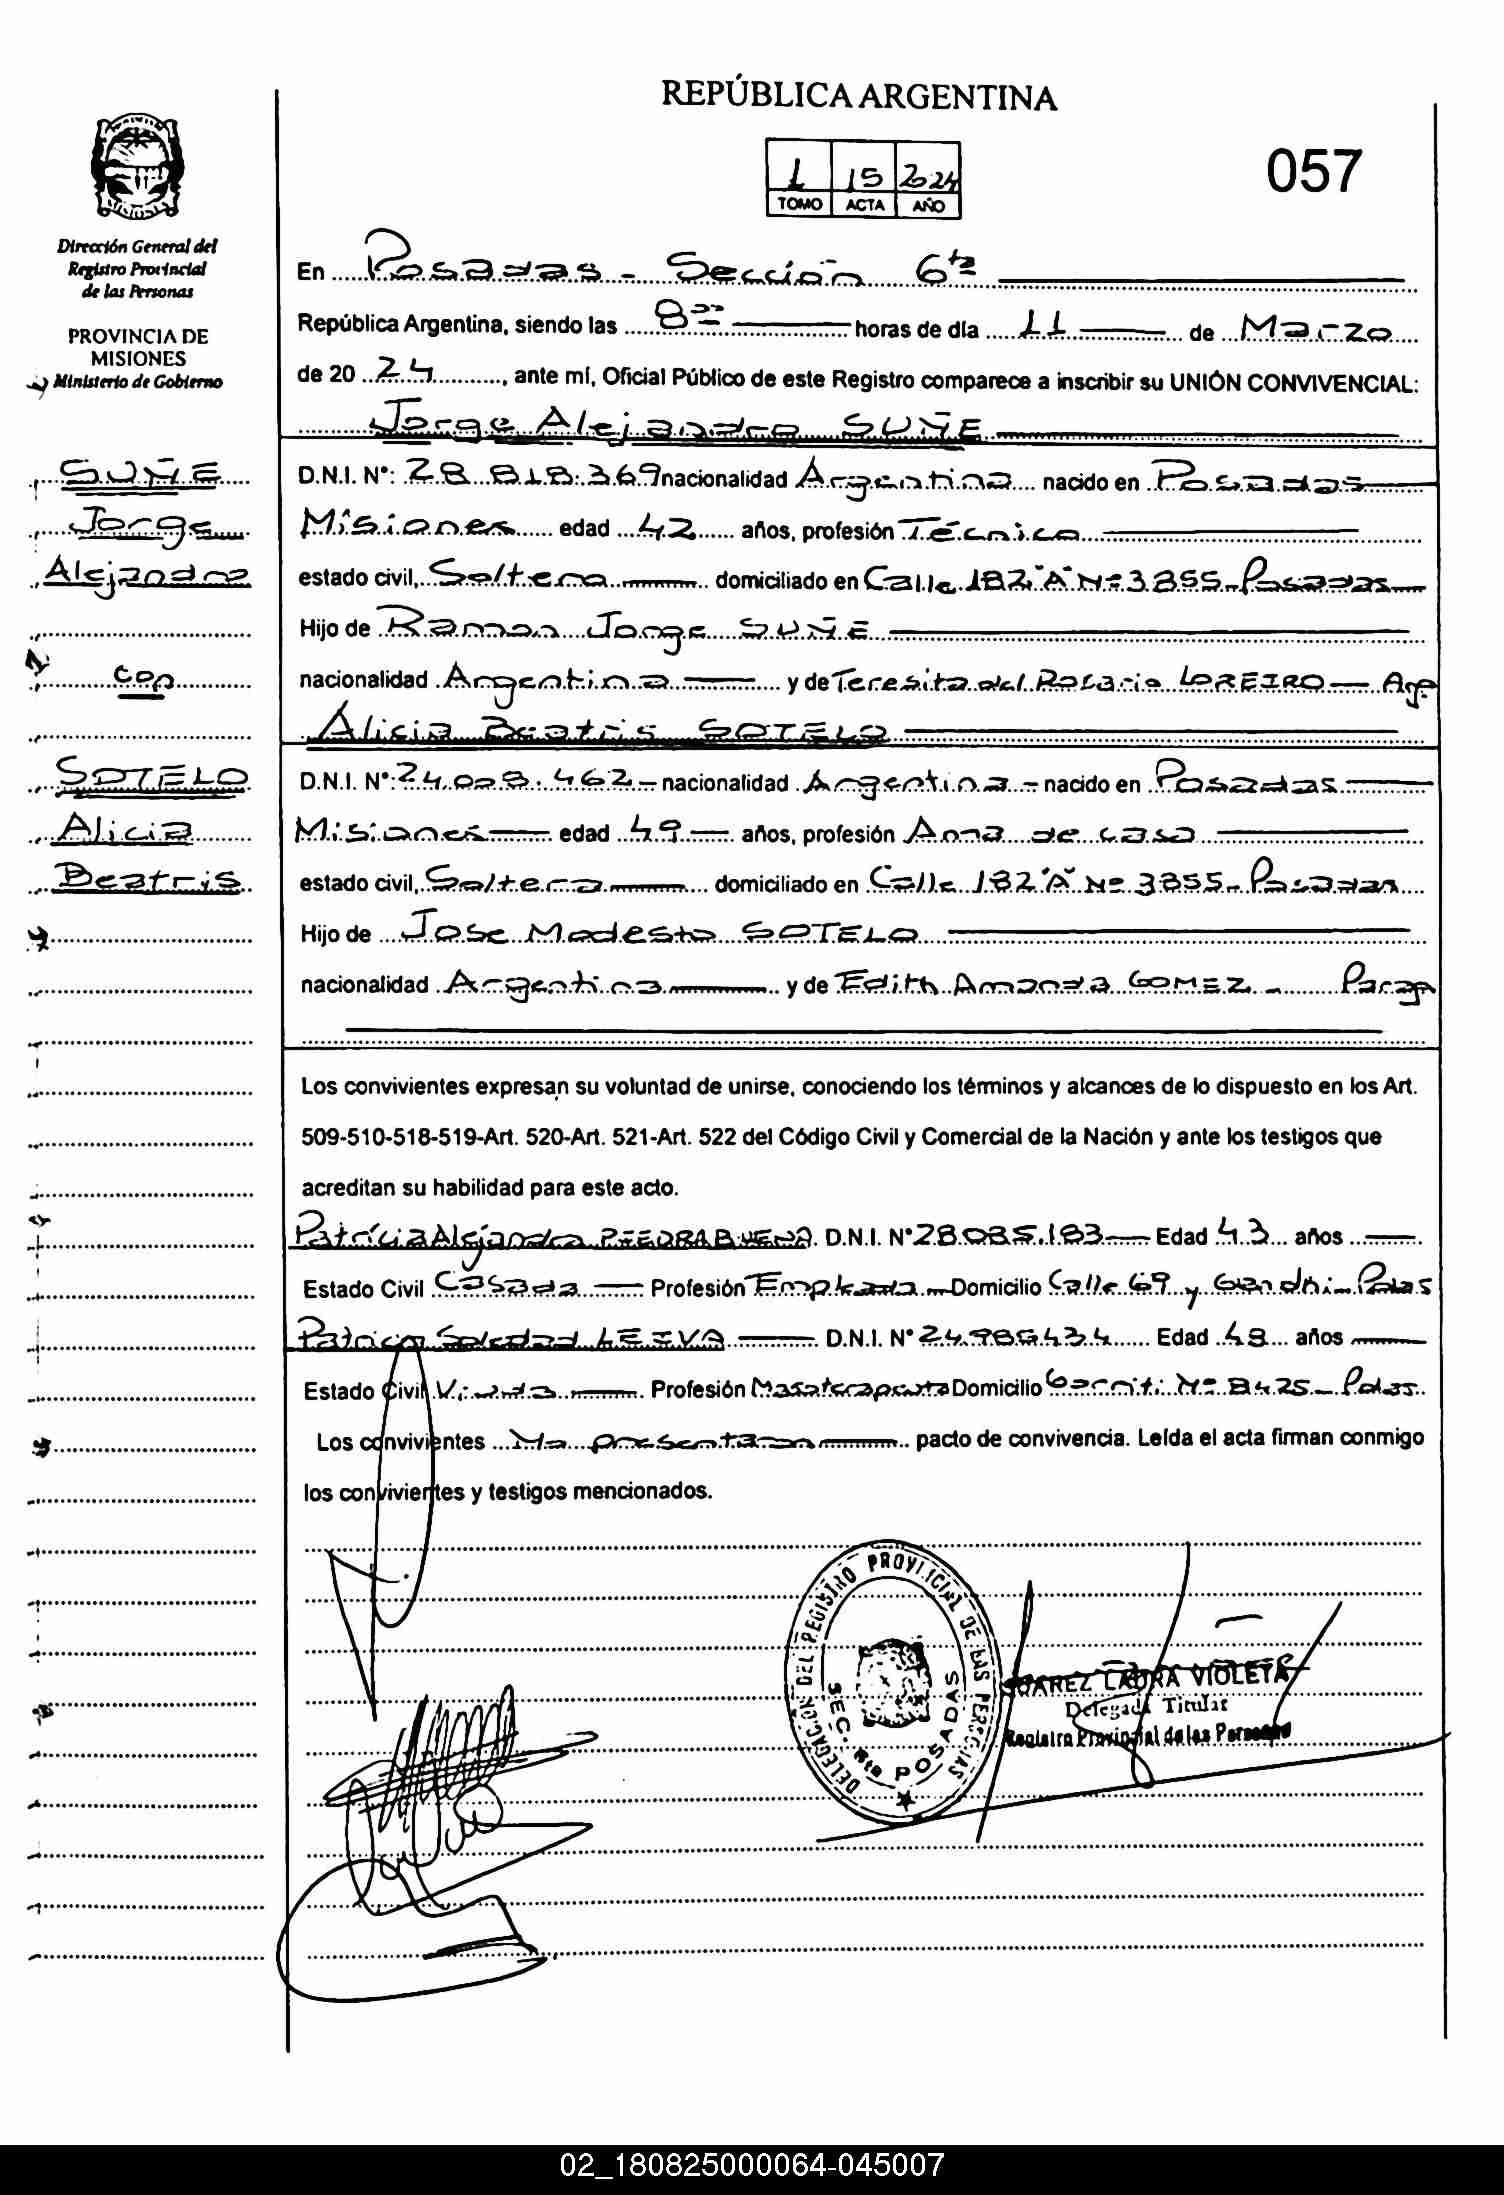 REPÚBLICA ARGENTINA
1 15 2024
TOMO ACTA AÑO
057
Dirección General del
Registro Provincial
de las Personas
PROVINCIA DE
MISIONES
Ministerio de Gobierno
En Posadas - Sección 6ta
República Argentina, siendo las 8 horas de día 11 de Marzo
de 20 24, ante mí, Oficial Público de este Registro comparece a inscribir su UNIÓN CONVIVENCIAL:
Jorge Alejandro SUÑE
SUÑE
Jorge
Alejandro
con
SOTELO
Alicia
Beatris
D.N.I. N°: 28.818.369 nacionalidad Argentina nacido en Posadas
Misiones edad 42 años, profesión Técnico
estado civil, Soltero domiciliado en Calle 182 "A" Nº 3855 - Posadas
Hijo de Ramon Jorge SUÑE
nacionalidad Argentina y de Teresita del Rosario LOREIRO — Arg
Alicia Beatris SOTELO
D.N.I. N°: 24.028.462 - nacionalidad Argentina - nacido en Posadas
Misiones edad 49 años, profesión Ama de casa
estado civil, Soltera domiciliado en Calle 182 "A" Nº 3855 - Posadas
Hijo de Jose Modesto SOTELO
nacionalidad Argentina y de Edith Amanda GOMEZ - Parag
Los convivientes expresan su voluntad de unirse, conociendo los términos y alcances de lo dispuesto en los Art.
509-510-518-519-Art. 520-Art. 521-Art. 522 del Código Civil y Comercial de la Nación y ante los testigos que
acreditan su habilidad para este acto.
Patrícia Alejandra PIEDRABUENA D.N.I. N° 28.085.183 Edad 43 años
Estado Civil Casada Profesión Empleada - Domicilio Calle 69 y - Pdas
Patricia Soledad LEIVA D.N.I. N° Edad 48 años
Estado Civil Viuda Profesión Masoterapeuta Domicilio Nº 8425 - Pdas.
Los convivientes No presentaron pacto de convivencia. Leída el acta firman conmigo
los convivientes y testigos mencionados.
DELEGACION DEL REGISTRO PROVINCIAL DE LAS PERSONAS
SEC. 6ta POSADAS
SUAREZ LAURA VIOLETA
Delegada Titular
Registro Provincial de las Personas
02_180825000064-045007